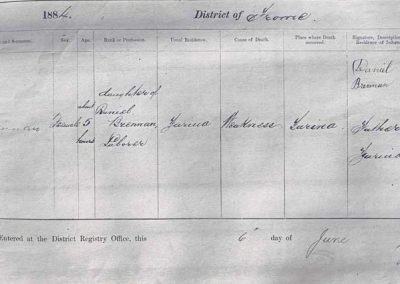 1884. District of Frome.
Sex. Age. Rank or Profession. Usual Residence. Cause of Death. Place where Death occurred. Signature, Description Residence of
Female about 5 hours daughter of Daniel Brennan, Laborer Yarina Weakness Yarina. Daniel Brennan Father Yarina
Entered at the District Registry Office, this 6th day of June